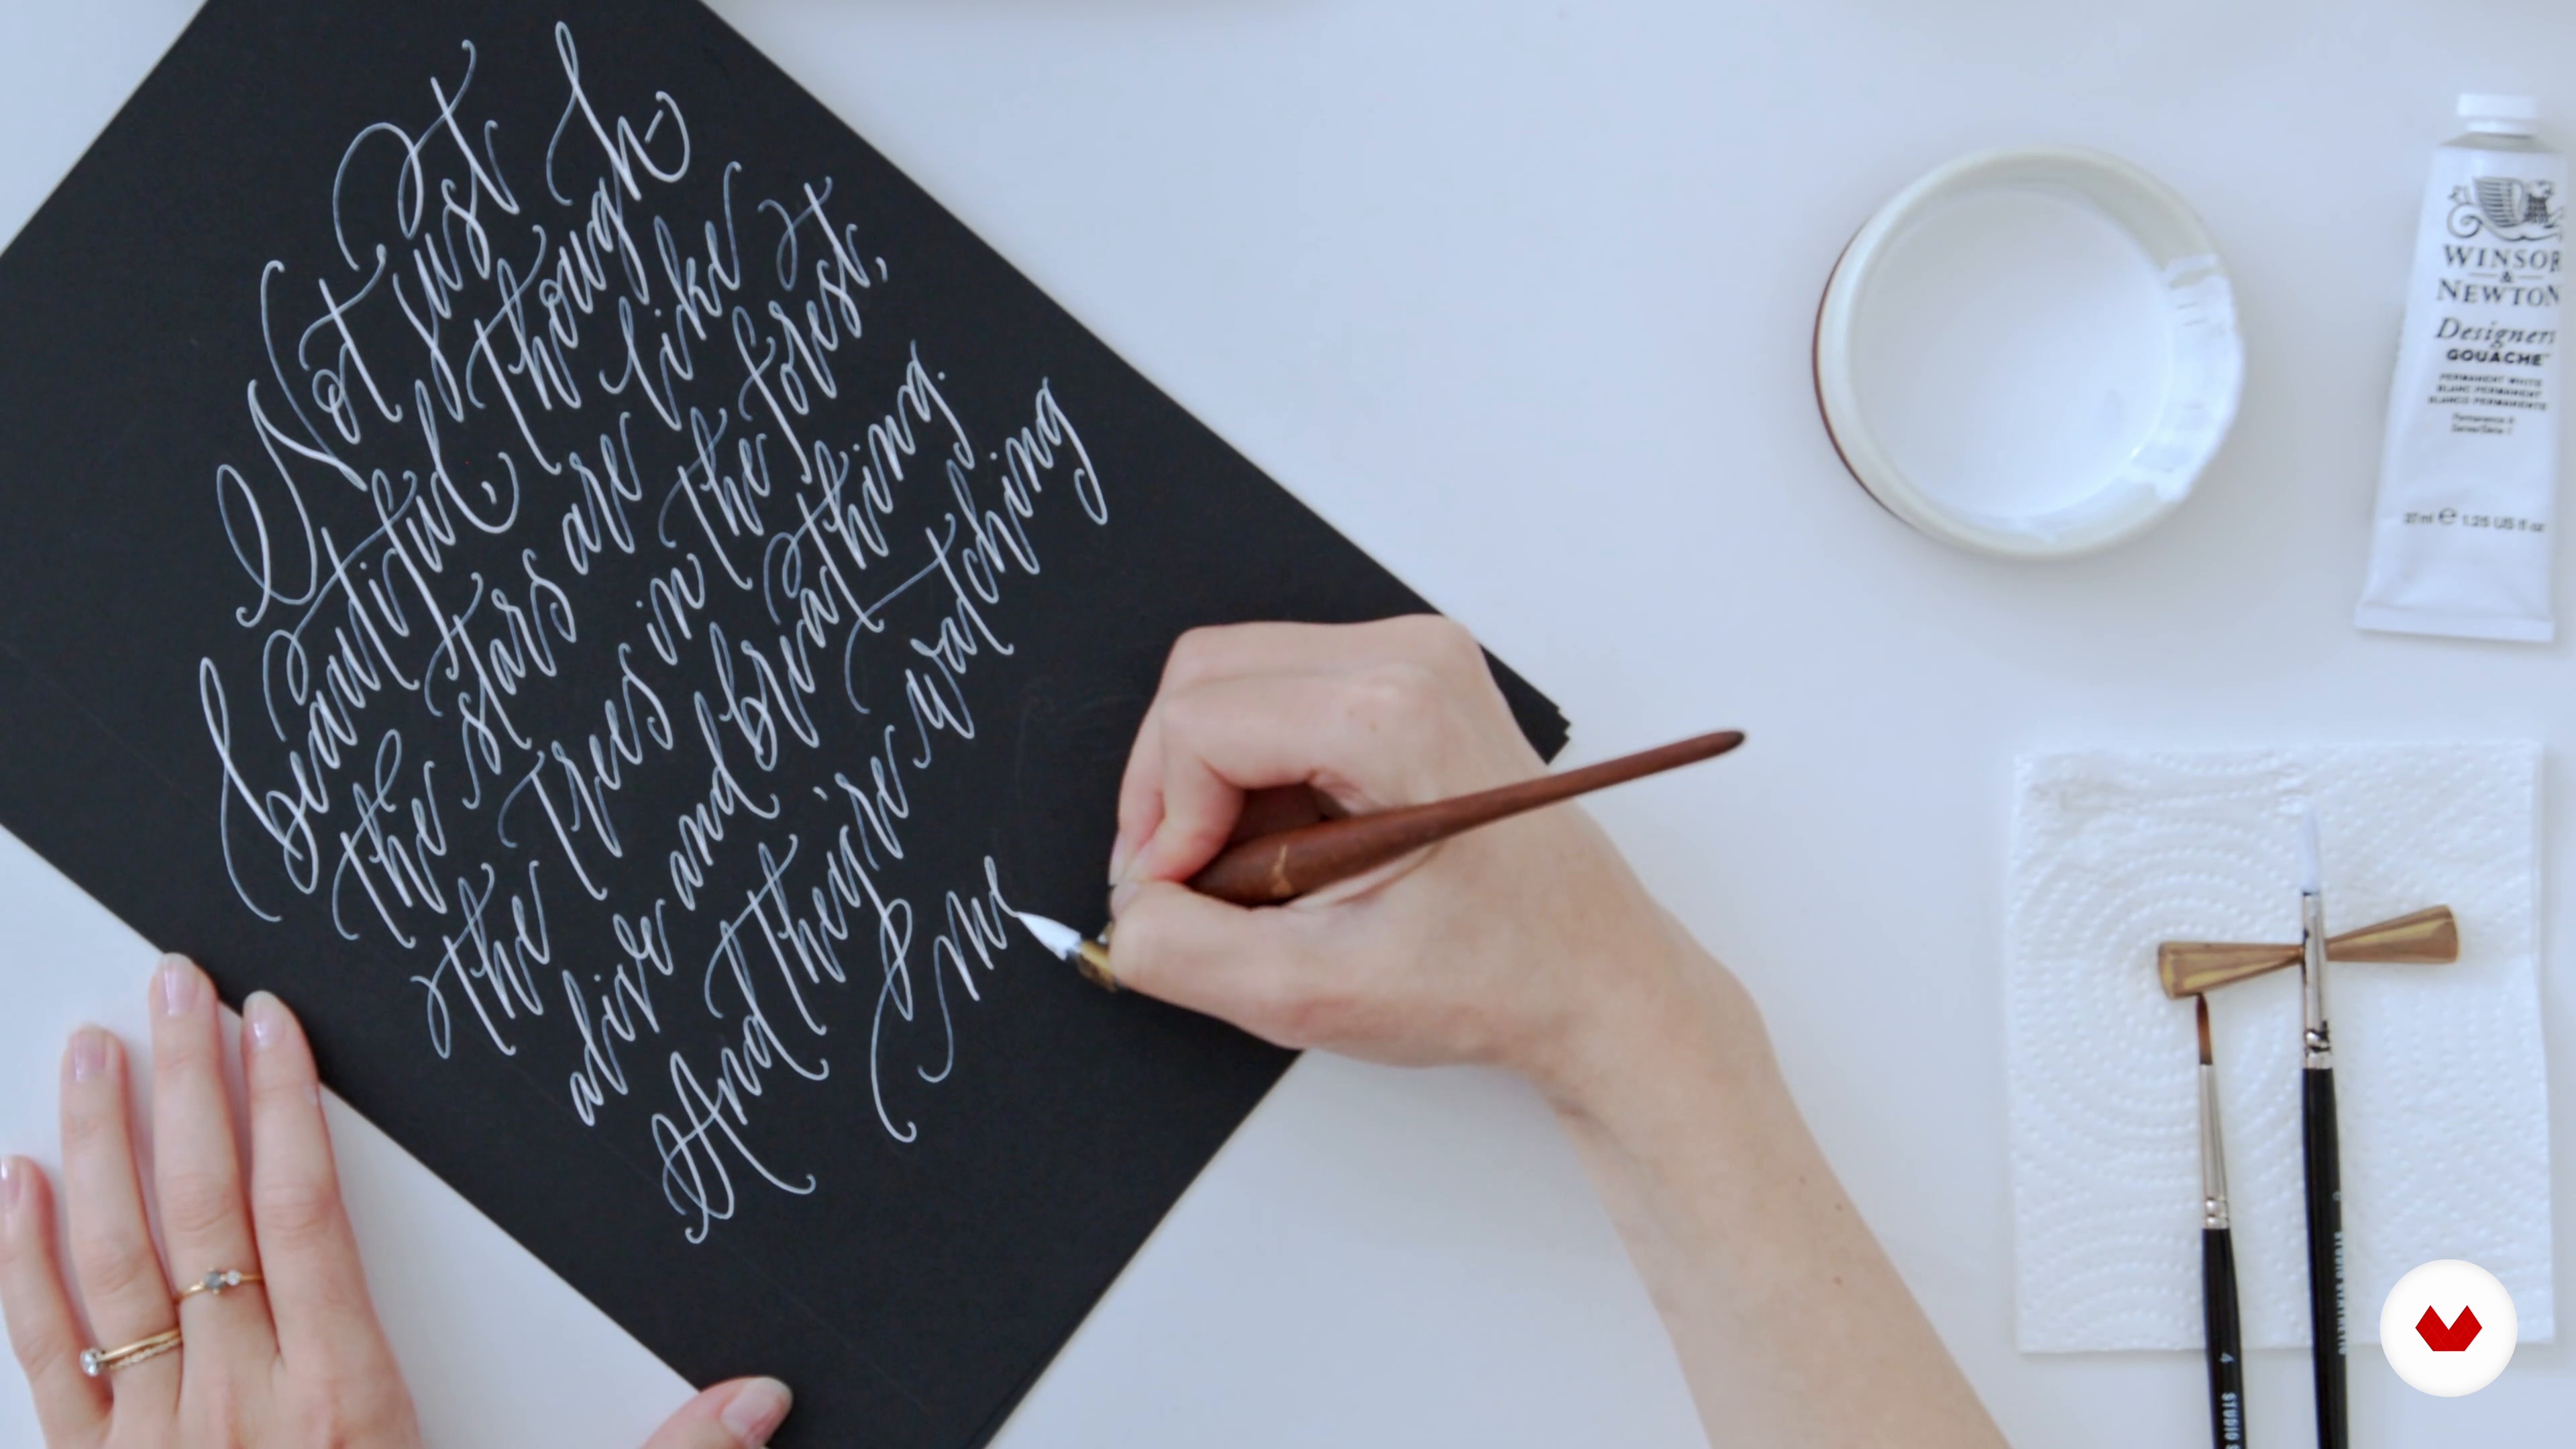 Not just
beautiful, though-
the stars are like
the trees in the forest,
alive and breathing.
And they're watching
me
WINSOR
&
NEWTON
Designers
GOUACHE
PERMANENT WHITE
BLANC PERMANENT
BLANCO PERMANENTE
37ml e 1.25 US fl oz
4 STUDIO